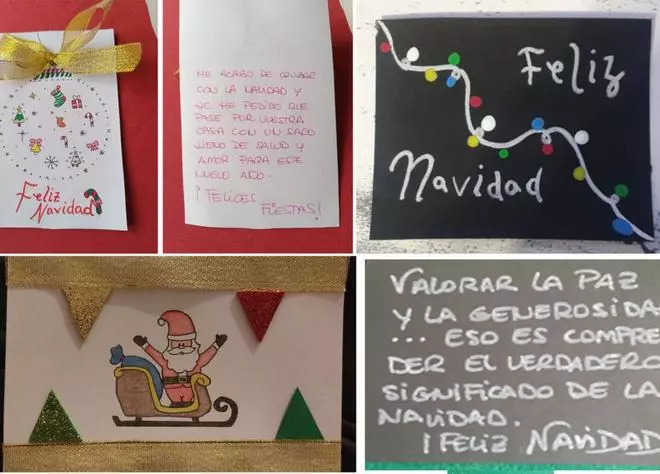 Feliz
Navidad
ME ACABO DE CRUZAR
CON LA NAVIDAD Y
LE HE PEDIDO QUE
PASE POR VUESTRA
CASA CON UN SACO
LLENO DE SALUD Y
AMOR PARA ESTE
NUEVO AÑO.
¡FELICES
FIESTAS!
Feliz
Navidad
VALORAR LA PAZ
Y LA GENEROSIDA
... ESO ES COMPRE
DER EL VERDADERO
SIGNIFICADO DE LA
NAVIDAD.
¡FELIZ NAVIDAD